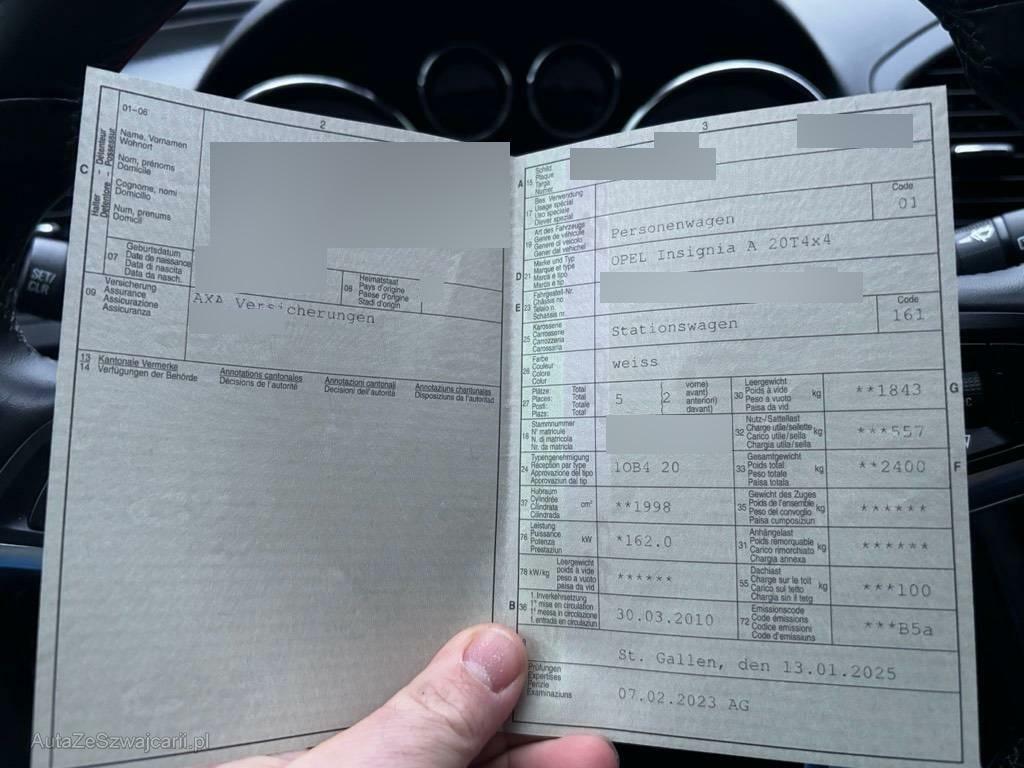 2
01-06
C
Halter - Détenteur
Detentore - Possessur
Name, Vornamen
Wohnort
Nom, prénoms
Domicile
Cognome, nomi
Domicilio
Num, prenums
Domicil
07
Geburtsdatum
Date de naissance
Data di nascita
Data da nasch.
08
Heimatstaat
Pays d'origine
Paese d'origine
Stadi d'origin
09
Versicherung
Assurance
Assicurazione
Assicuranza
AXA Versicherungen
13
14
Kantonale Vermerke
Verfügungen der Behörde
Annotations cantonales
Décisions de l'autorité
Annotazioni cantonali
Decisioni dell'autorità
Annotaziuns chantunalas
Disposiziuns da l'autoritad
3
A
15
Schild
Plaque
Targa
Numer
17
Bes. Verwendung
Usage spécial
Uso speciale
Diever spezial
19
Art des Fahrzeugs
Genre de véhicule
Genere di veicolo
Gener dal vehichel
Personenwagen
Code
01
D
21
Marke und Typ
Marque et type
Marca e tipo
Marca e tip
OPEL Insignia A 20T4x4
E
23
Fahrgestell-Nr.
Châssis no
Telaio n.
Schassis nr.
25
Karosserie
Carrosserie
Carrozzeria
Carossaria
Stationswagen
Code
161
26
Farbe
Couleur
Colore
Colur
weiss
27
Plätze: Total
Places: Total
Posti: Totale
Plazs: Total
5
(2
vorne)
avant)
anteriori)
davant)
30
Leergewicht
Poids à vide
Peso a vuoto
Paisa da vid
kg
**1843
G
18
Stammnummer
N° matricule
N. di matricola
Nr. da matricla
32
Nutz-/Sattellast
Charge utile/sellette
Carico utile/sella
Chargia utila/sella
kg
***557
24
Typengenehmigung
Réception par type
Approvazione del tipo
Approvaziun dal tip
1OB4 20
33
Gesamtgewicht
Poids total
Peso totale
Paisa totala
kg
**2400
F
37
Hubraum
Cylindrée
Cilindrata
Cilindrada
cm³
**1998
35
Gewicht des Zuges
Poids de l'ensemble
Peso del convoglio
Paisa cumposiziun
kg
******
76
Leistung
Puissance
Potenza
Prestaziun
kW
*162.0
31
Anhängelast
Poids remorquable
Carico rimorchiato
Chargia annexa
kg
******
78 kW/kg
Leergewicht
poids à vide
peso a vuoto
paisa da vid
******
55
Dachlast
Charge sur le toit
Carico sul tetto
Chargia sin il tetg
kg
***100
B
36
1. Inverkehrsetzung
1re mise en circulation
1a messa in circolazione
1. entrada en circulaziun
30.03.2010
72
Emissionscode
Code émissions
Codice emissioni
Code d'emissiuns
***B5a
St. Gallen, den 13.01.2025
Prüfungen
Expertises
Perizie
Examinaziuns
07.02.2023 AG
SET/
CLR
AutaZeSzwajcarii.pl